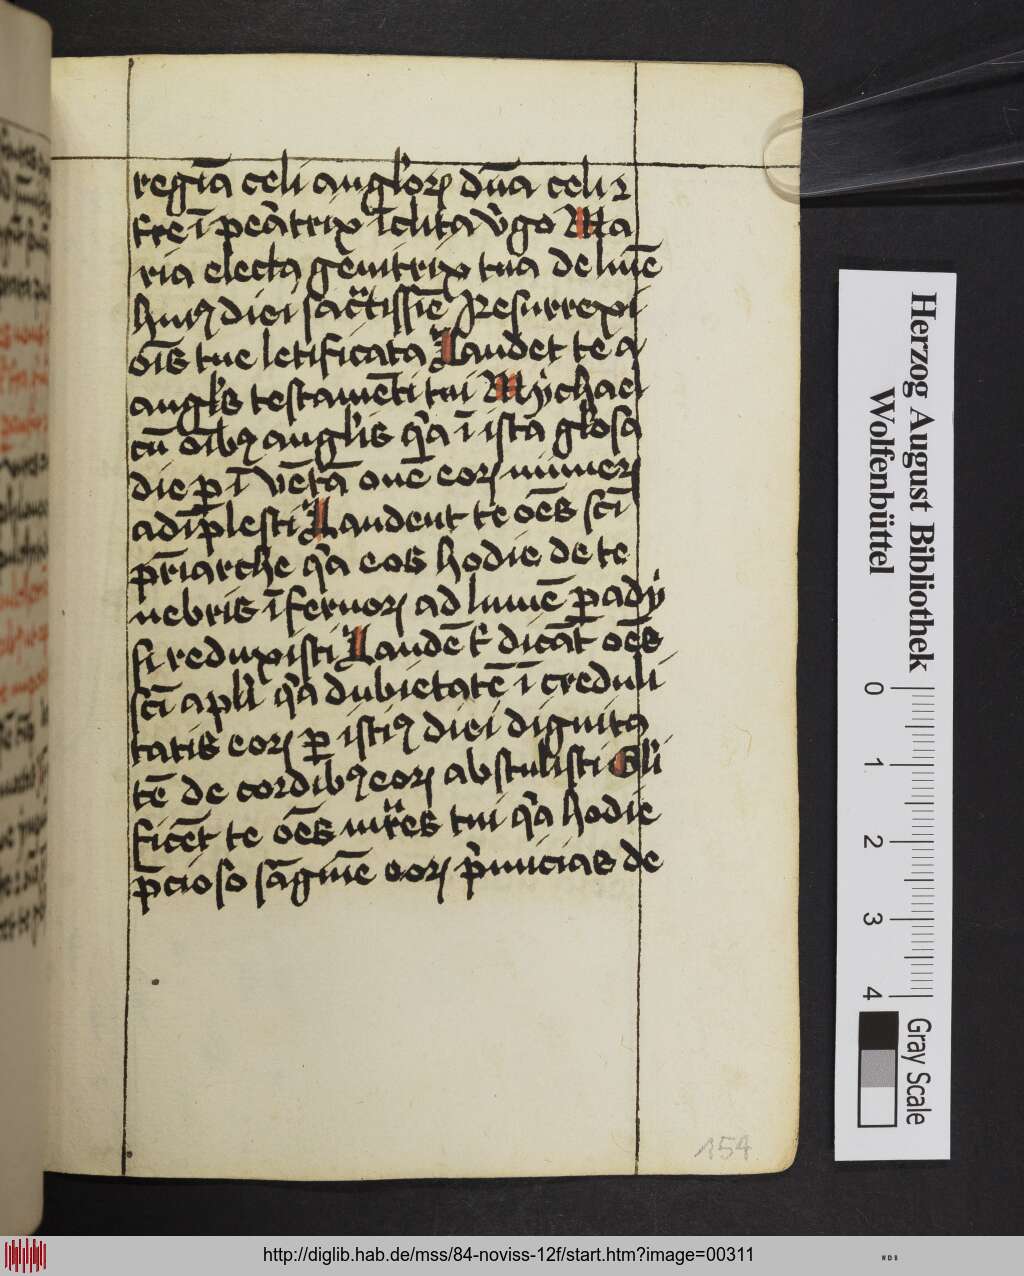 regīa celi anglorꝝ dn̄a celi ⁊
tre īpeᵃtrix īclita vͥgo Ma
ria electa genitrix tua de lum̄e
huiꝰ diei sacᵃtissīe Resurrexi
oīs tue letificata Laudet te a
angl's testamēti tui Mẏchael
cū oībꝫ anglis qͣa ī ista gl'osa
die ꝑ īvētā ouē eorꝝ numerꝝ
adīplesti Laudent te oēs scī
pr̄iarche qͣa eos hodie de te
nebris īfernorꝝ ad lumē ꝑadÿ
si reduxisti Laudē t᷑ dicāt oēs
scī apl'i qͣa dubietatē ī creduli
tatis eorꝝ ꝑ istiꝰ diei dignita
tē de cordibꝫ eorꝝ abstulisti Gl'i
ficēt te oēs mr̄es tui qͣa hodie
p̄cioso sāguīe eorꝝ pͥmicias de
154
Herzog August Bibliothek
Wolfenbüttel
0 1 2 3 4
Gray Scale
http://diglib.hab.de/mss/84-noviss-12f/start.htm?image=00311